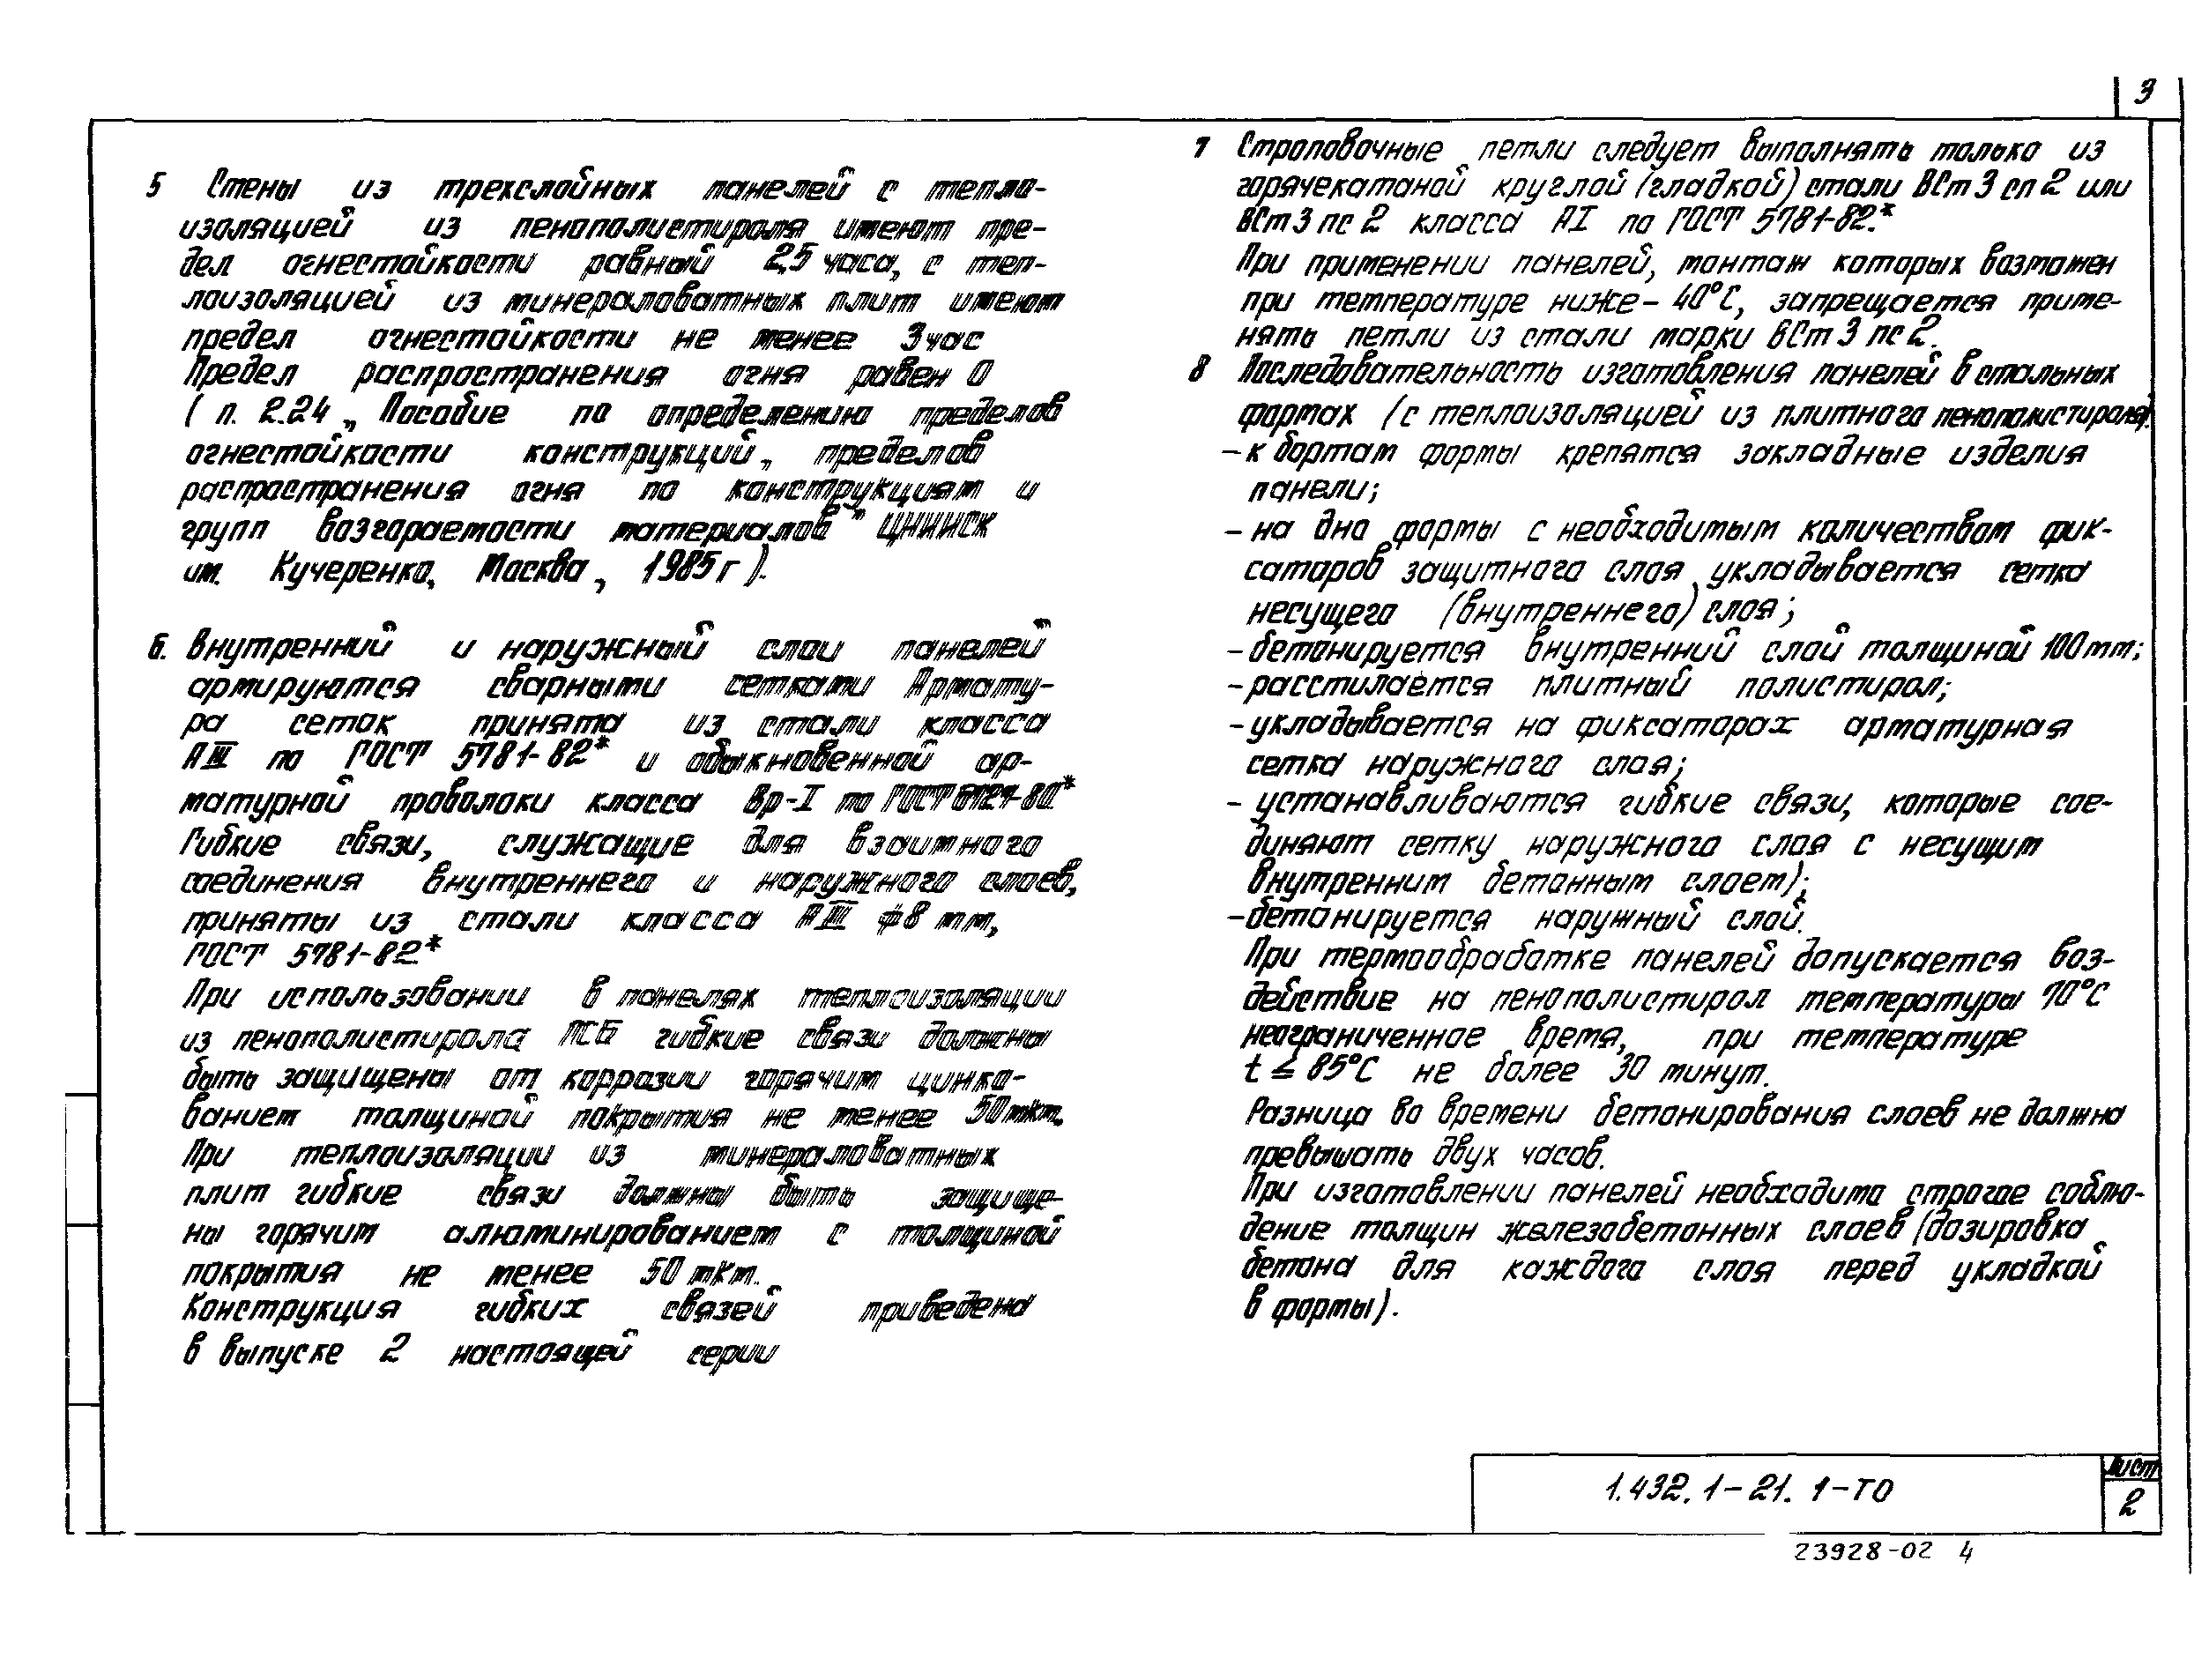 3
5 Стены из трехслойных панелей с тепло-
изоляцией из пенополистирола имеют пре-
дел огнестойкости равный 2,5 часа, с теп-
лоизоляцией из минераловатных плит имеют
предел огнестойкости не менее 3час
Предел распространения огня равен 0
( п. 2.24 „Пособие по определению пределов
огнестойкости конструкций, пределов
распространения огня по конструкциям и
групп возгораемости материалов" ЦНИИСК
им. Кучеренко, Москва, 1985г ).
6. Внутренний и наружный слои панелей
армируются сварными сетками Армату-
ра сеток принята из стали класса
АIII по ГОСТ 5781-82* и обыкновенной ар-
матурной проволоки класса Вр-I по ГОСТ 6727-80*
Гибкие связи, служащие для взаимного
соединения внутреннего и наружного слоев,
приняты из стали класса АIII ф8 мм,
ГОСТ 5781-82*
При использовании в панелях теплоизоляции
из пенополистирола ПСБ гибкие связи должны
быть защищены от коррозии горячим цинко-
ванием толщиной покрытия не менее 50мкм.
При теплоизоляции из минераловатных
плит гибкие связи должны быть защище-
ны горячим алюминированием с толщиной
покрытия не менее 50 мкм.
Конструкция гибких связей приведена
в выпуске 2 настоящей серии
7 Строповочные петли следует выполнять только из
горячекатаной круглой (гладкой) стали ВСт 3 сп 2 или
ВСт 3 пс 2 класса АI по ГОСТ 5781-82.*
При применении панелей, монтаж которых возможен
при температуре ниже - 40°С, запрещается приме-
нять петли из стали марки ВСт 3 пс 2.
8 Последовательность изготовления панелей в стальных
формах (с теплоизоляцией из плитного пенополистирола).
- к бортам формы крепятся закладные изделия
панели;
- на дно формы с необходимым количеством фик-
саторов защитного слоя укладывается сетка
несущего (внутреннего) слоя;
- бетонируется внутренний слой толщиной 100мм;
- расстилается плитный полистирол;
- укладывается на фиксаторах арматурная
сетка наружного слоя;
- устанавливаются гибкие связи, которые сое-
диняют сетку наружного слоя с несущим
внутренним бетонным слоем);
- бетонируется наружный слой.
При термообработке панелей допускается воз-
действие на пенополистирол температуры 70°С
неограниченное время, при температуре
t ≤ 85°С не более 30 минут.
Разница во времени бетонирования слоев не должна
превышать двух часов.
При изготовлении панелей необходимо строгое соблю-
дение толщин железобетонных слоев (дозировка
бетона для каждого слоя перед укладкой
в формы).
1.432.1-21. 1-ТО
Лист
2
23928-02 4